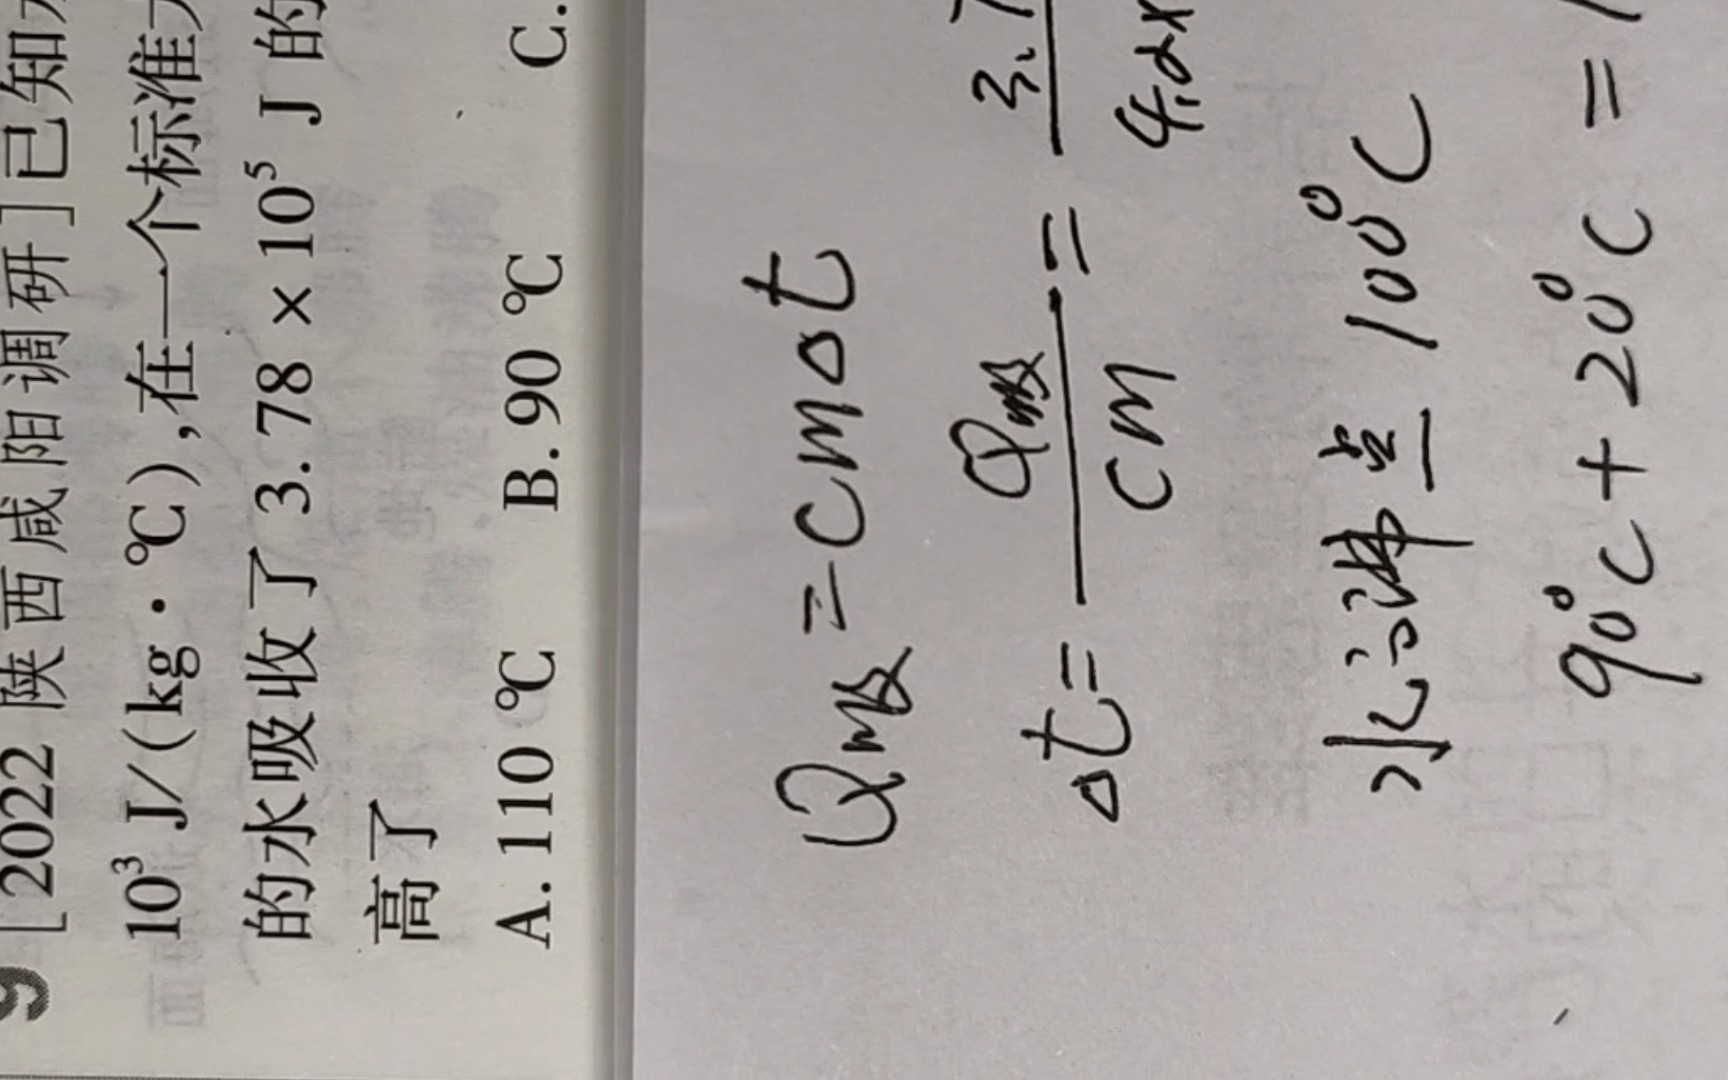 9 [2022 陕西咸阳调研]已知
10³ J/(kg·℃),在一个标准
的水吸收了 3.78×10⁵ J 的
高了
A. 110 ℃ B. 90 ℃ C.
Q吸=cm△t
△t=Q吸/cm=3.7/4.2×
水沸点 100°C
90°C+20°C=1